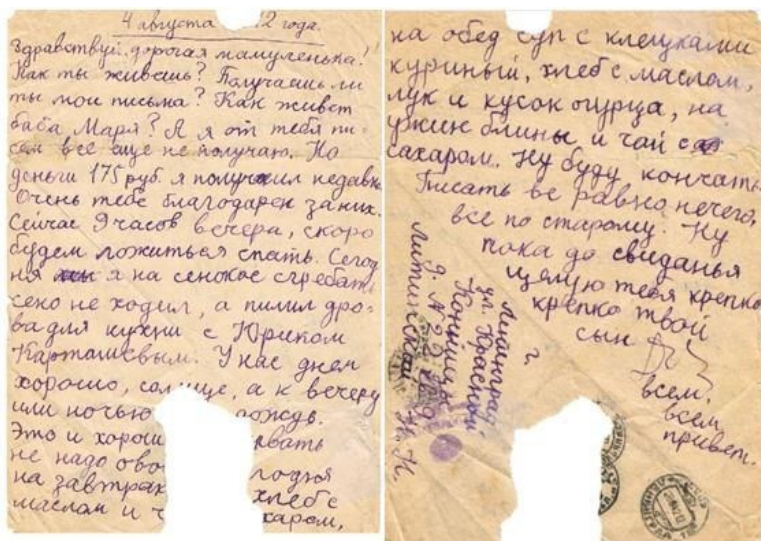 4 августа 2 года.
Здравствуй, дорогая мамуленька!
Как ты живешь? Получаешь ли
ты мои письма? Как живет
баба Маря? А я от тебя пи-
сем все еще не получаю. Но
деньги 175 руб. я получил недавно.
Очень тебе благодарен за них.
Сейчас 9 часов вечера, скоро
будем ложиться спать. Сегод
ня я на сенокос сгребать
сено не ходил, а пилил дро-
ва для кухни с Юриком
Карташевым. У нас днем
хорошо, солнце, а к вечеру
или ночью дождь.
Это и хорош вать
не надо ово годня
на завтрак хлеб с
маслом и ч харом,
на обед суп с клецками
куриный, хлеб с маслом,
лук и кусок огурца, на
ужин блины и чай с
сахаром. Ну буду кончать.
Писать все равно нечего,
все по старому. Ну
пока до свиданья
целую тебя крепко
крепко твой
сын
всем,
всем
привет.
г.
Ленинград
ул. Красной
Конницы
д. №
Литинской М. Н.